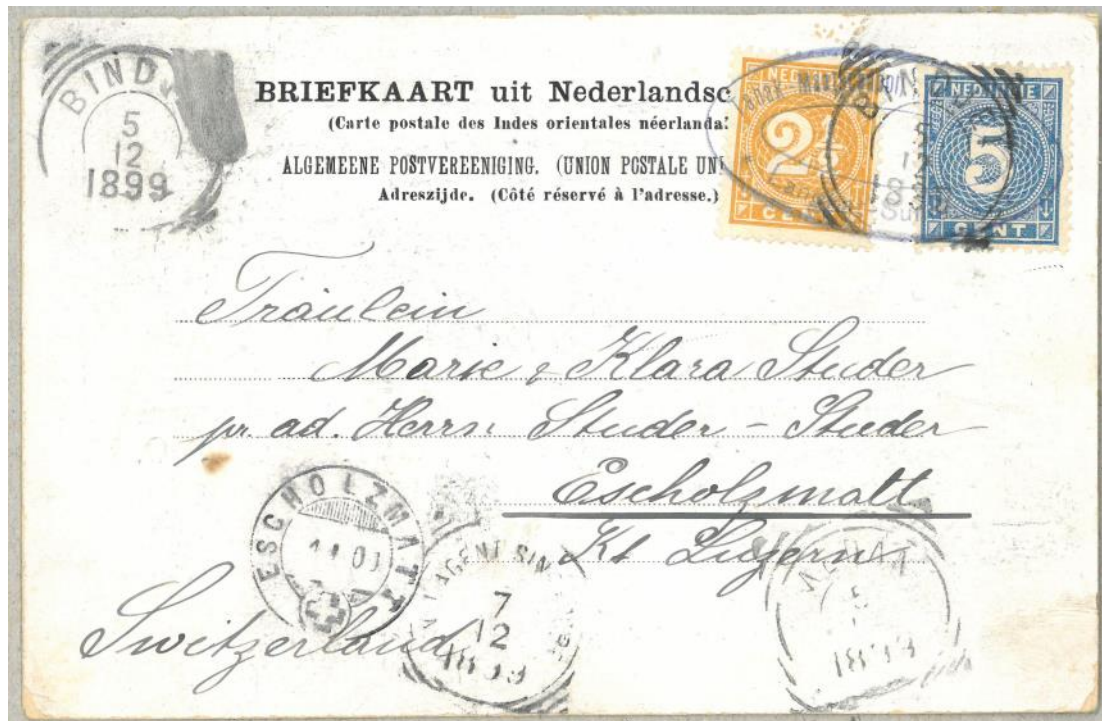 BINDJ
5
12
1899
BRIEFKAART uit Nederlandsc
(Carte postale des Indes orientales néerlanda
ALGEMEENE POSTVEREENIGING. (UNION POSTALE UNI
Adreszijde. (Côté réservé à l'adresse.)
NED
2½
CENT
BINDJ
5
12
NED. INDIE
5
CENT
Fräulein
Marie & Klara Studer
pr. ad. Herrn Studer - Studer
Escholzmatt
Kt Luzern
Switzerland
ESCHOLZMATT
AGENT SIN
7
12
1899
1899